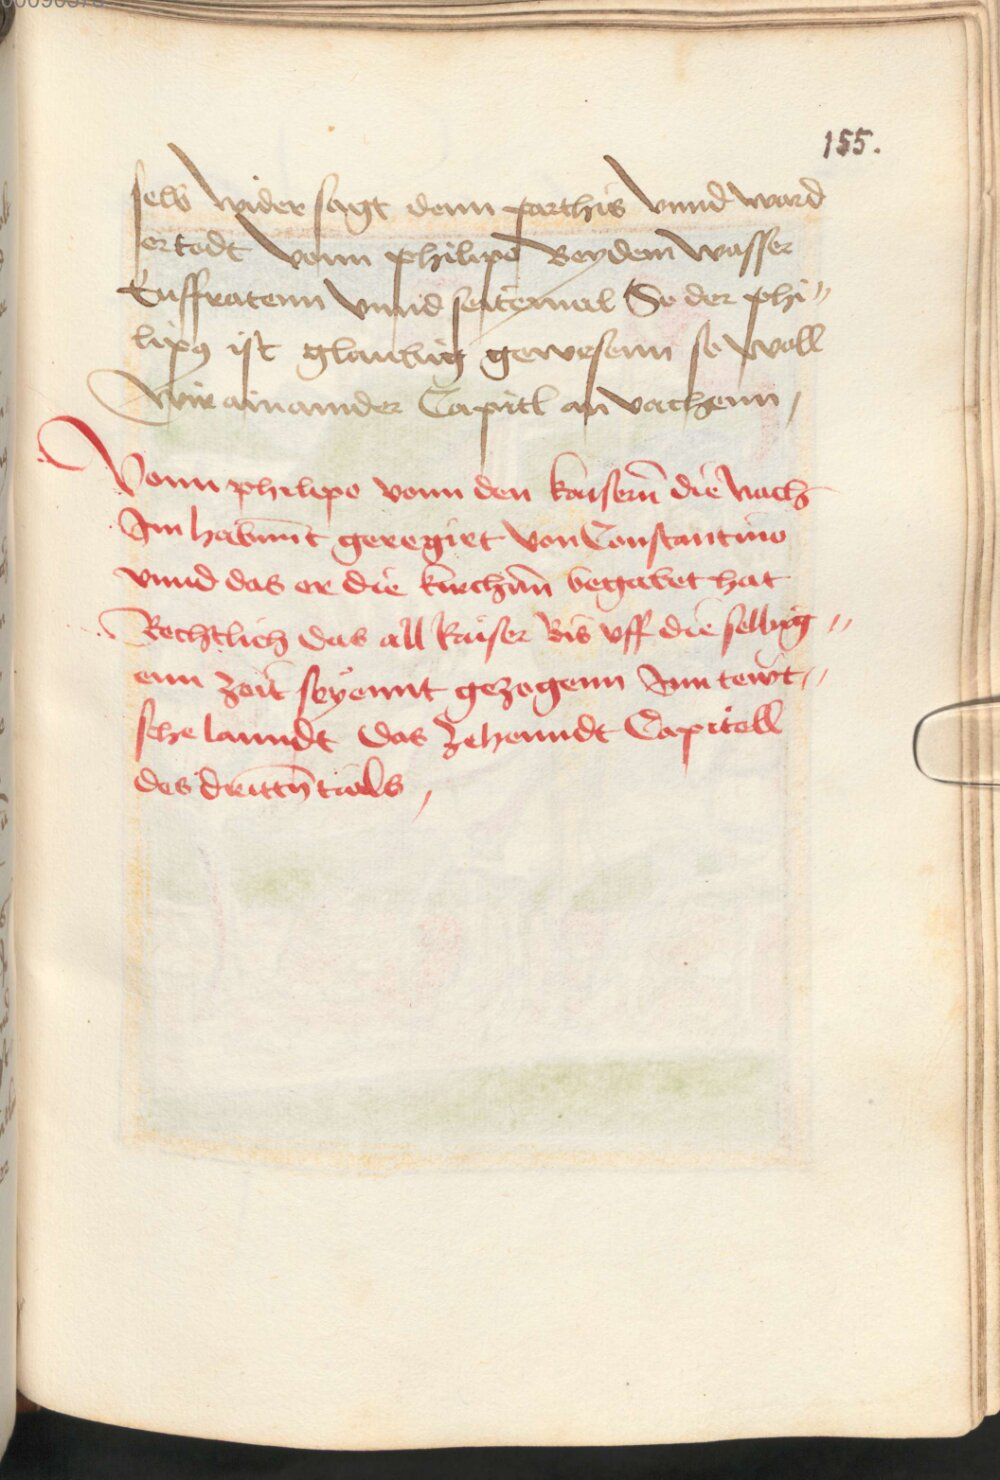 155.
selb wider sagt denn parthis vnnd ward
ertodt vonn philipo Beydem wasser
Euffratenn vnnd seitemal So der phi〃
lipꝰ ist glaubig gewesenn so woll
wir ainannder Capitl an vachenn /
Vonn philipo vonn den kaisern̄ die nach
Im habennt geregirt von Constantino
vnnd das er die kirchenn̄ begabet hat
Rechtlich das all kaiser Bis vff die selbig〃
enn Zeit seyennt gezogenn Inn tewt〃
sche lanndt Das Zehenndt Capitell
des drittn̄ tails /